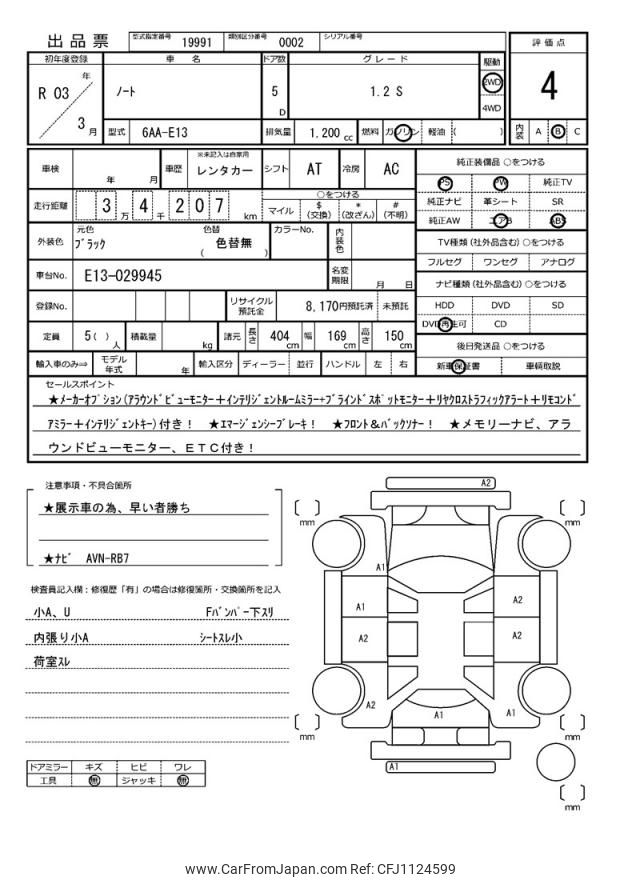 出品票 型式指定番号 19991 類別区分番号 0002 シリアル番号
初年度登録 車名 ドア数 グレード 駆動 評価点
R 03 年 3 月 ノート 5 D 1.2 S 2WD 4WD 4
型式 6AA-E13 排気量 1,200 cc 燃料 ガソリン 軽油 ( ) 内装 A B C
車検 年 月 車歴 ※未記入は自家用 レンタカー シフト AT 冷房 AC 純正装備品 ○をつける
PS PW 純正TV
走行距離 3 万 4 千 2 0 7 km ○をつける
マイル $(交換) *(改ざん) #(不明)
純正ナビ 革シート SR
純正AW エアB ABS
外装色 元色 ブラック 色替 ( 色替無 ) カラーNo. 内装色
TV種類(社外品含む)○をつける
フルセグ ワンセグ アナログ
車台No. E13-029945 名変期限 月 日
ナビ種類(社外品含む)○をつける
登録No. リサイクル預託金 8,170円預託済 未預託
HDD DVD SD
DVD再生可 CD
定員 5( ) 人 積載量 kg 諸元 長さ 404 cm 幅 169 cm 高さ 150 cm
後日発送品 ○をつける
輸入車のみ⇒ モデル年式 年 輸入区分 ディーラー 並行 ハンドル 左 右
新車保証書 車輌取説
セールスポイント
★メーカーオプション(アラウンドビューモニター+インテリジェントルームミラー+ブラインドスポットモニター+リヤクロストラフィックアラート+リモコンド
アミラー+インテリジェントキー)付き! ★エマージェンシーブレーキ! ★フロント&バックソナー! ★メモリーナビ、アラ
ウンドビューモニター、ETC付き!
注意事項・不具合箇所
★展示車の為、早い者勝ち
★ナビ AVN-RB7
検査員記入欄:修復歴「有」の場合は修復箇所・交換箇所を記入
小A、U Fバンパー下スリ
内張り小A シートスレ小
荷室スレ
ドアミラー キズ ヒビ ワレ
工具 無 ジャッキ 無
A2
mm
mm
A1
A1
A2
A2
A2
A2
A1
A1
mm
mm
A1
mm
www.CarFromJapan.com Ref: CFJ1124599